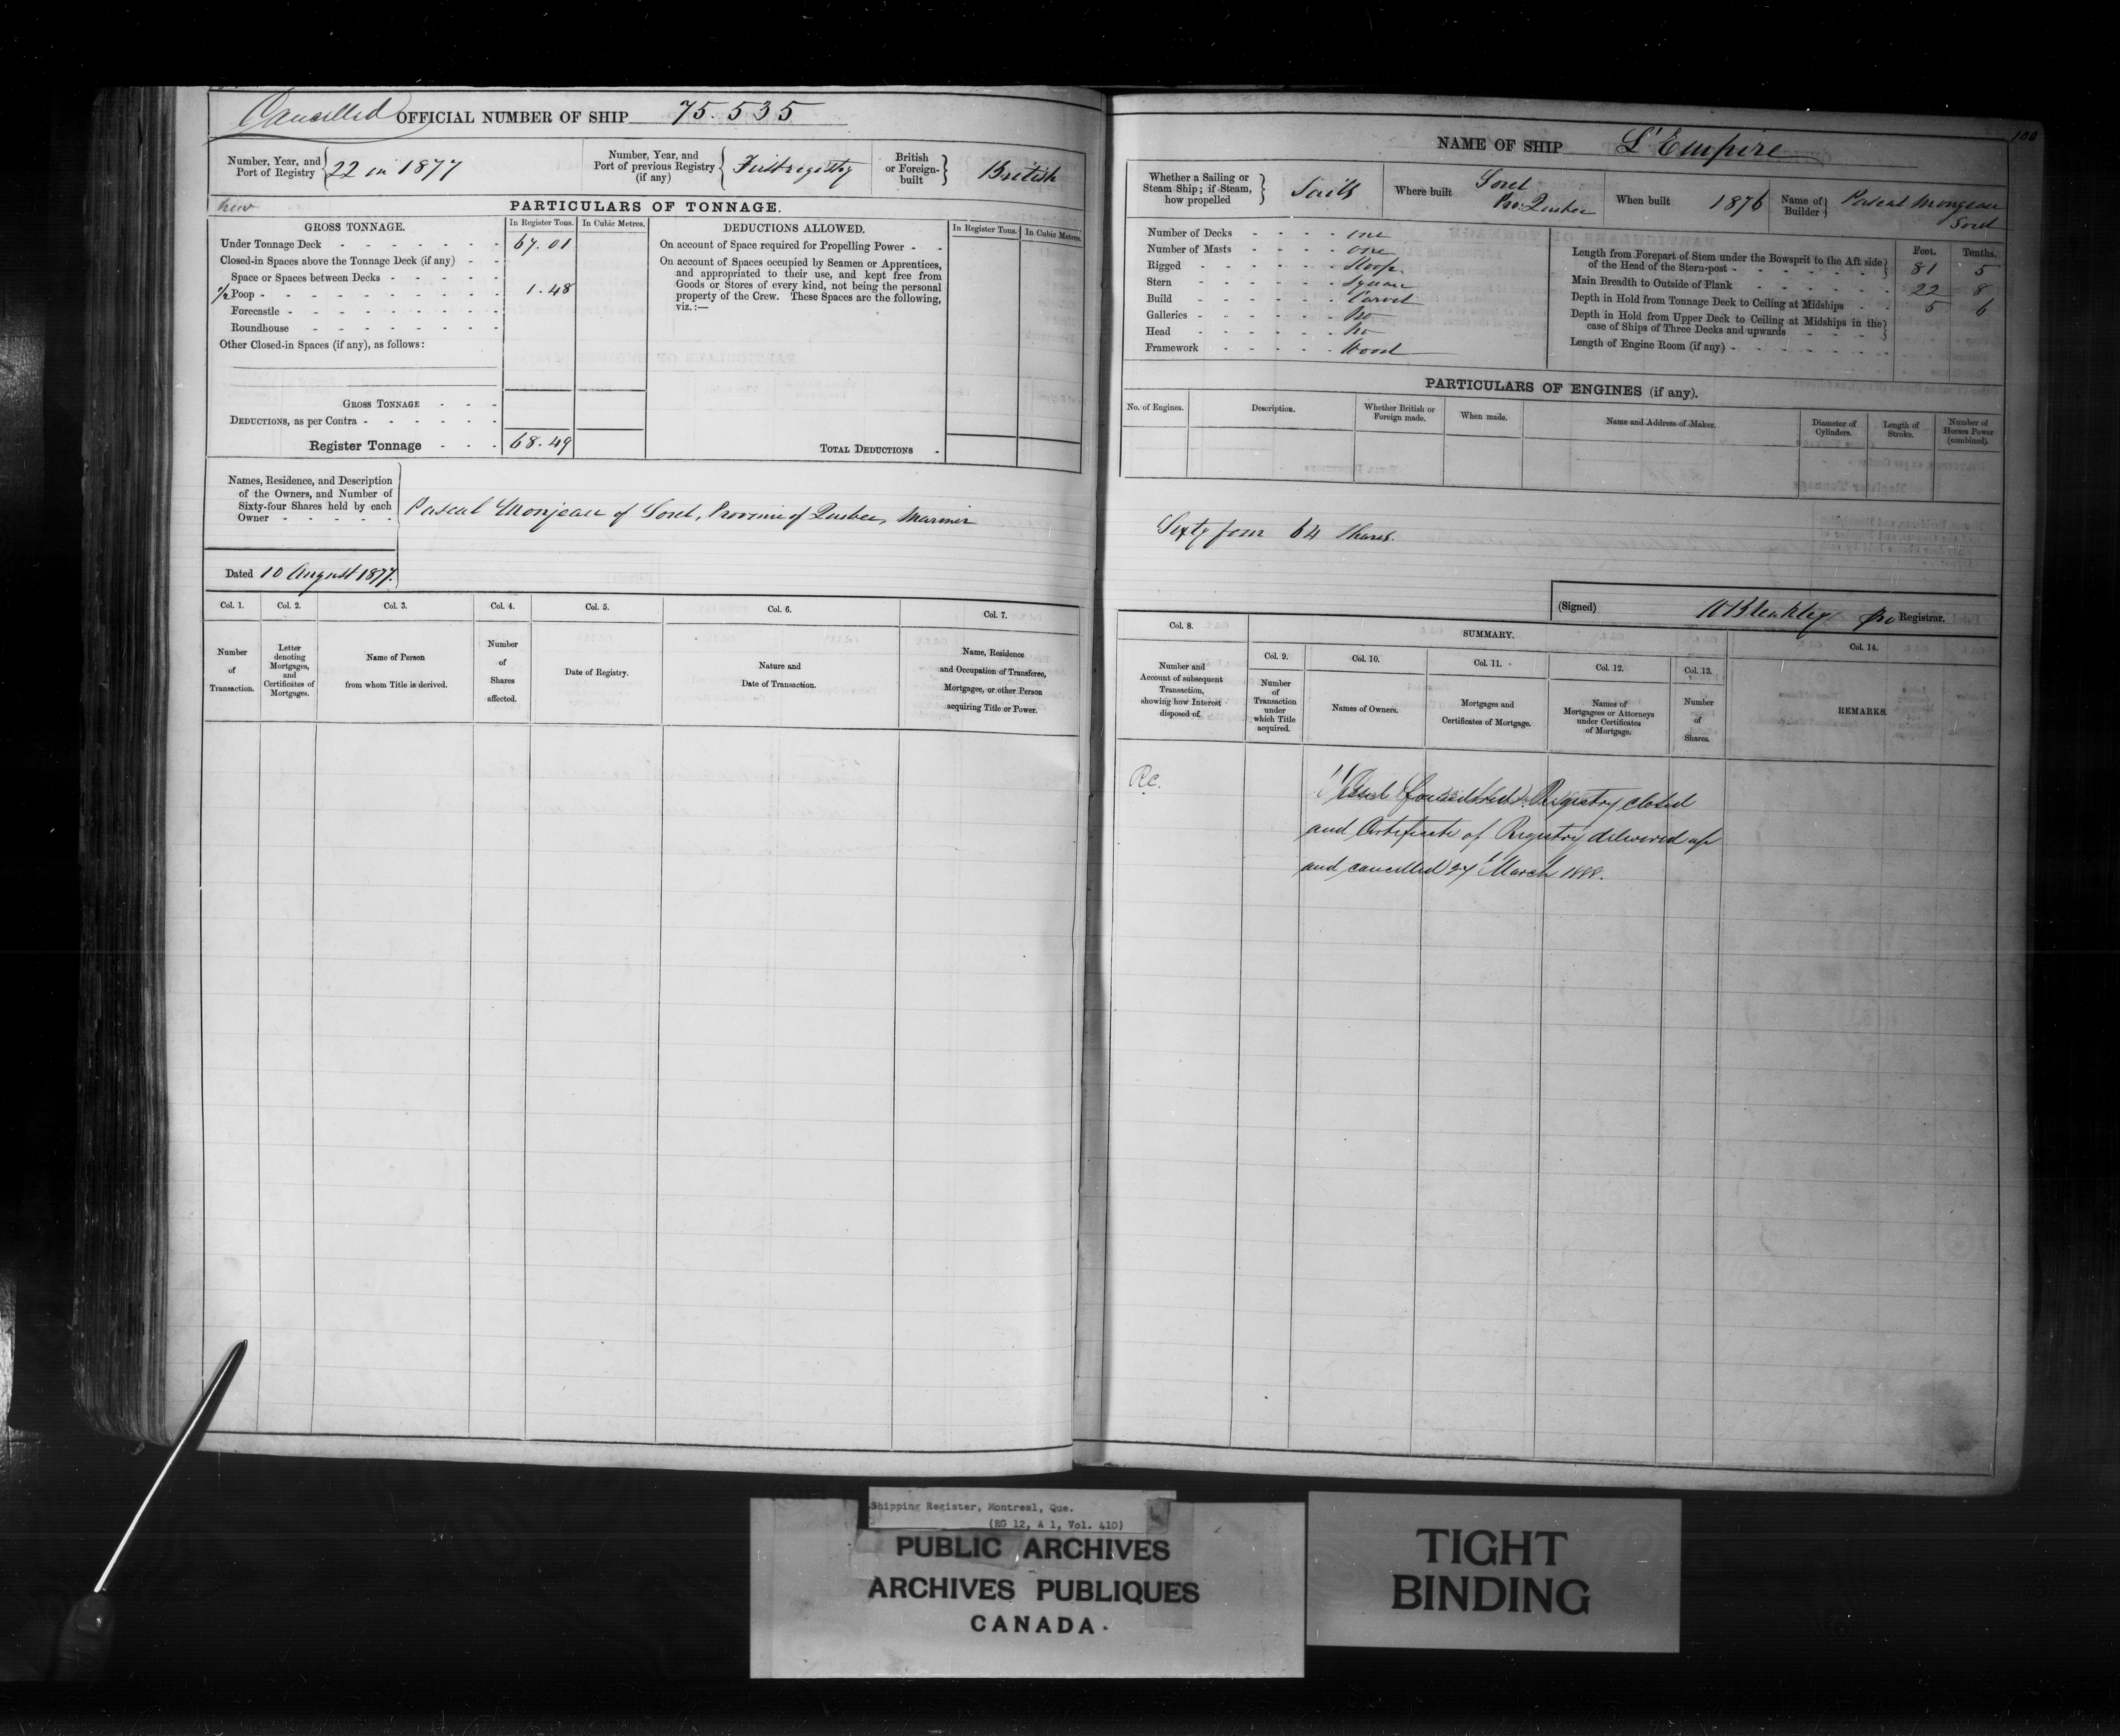 Cancelled OFFICIAL NUMBER OF SHIP 75.535
Number, Year, and Port of Registry 22 in 1877
Number, Year, and Port of previous Registry (if any) First registry
British or Foreign-built British
new
PARTICULARS OF TONNAGE.
GROSS TONNAGE. In Register Tons. In Cubic Metres.
Under Tonnage Deck - - - - - - - 67.01
Closed-in Spaces above the Tonnage Deck (if any) - -
Space or Spaces between Decks - - - - -
1/2 Poop - - - - - - - - - - 1.48
Forecastle - - - - - - - - -
Roundhouse - - - - - - - -
Other Closed-in Spaces (if any), as follows:
GROSS TONNAGE - - -
DEDUCTIONS, as per Contra - - - - - -
Register Tonnage - - - 68.49
DEDUCTIONS ALLOWED. In Register Tons. In Cubic Metres.
On account of Space required for Propelling Power - -
On account of Spaces occupied by Seamen or Apprentices,
and appropriated to their use, and kept free from
Goods or Stores of every kind, not being the personal
property of the Crew. These Spaces are the following,
viz.:—
TOTAL DEDUCTIONS -
Names, Residence, and Description
of the Owners, and Number of
Sixty-four Shares held by each
Owner - - - - -
Pascal Monjeau of Sorel, Province of Quebec, Mariner
Dated 10 August 1877.
Col. 1. Col. 2. Col. 3. Col. 4. Col. 5. Col. 6. Col. 7.
Number of Transaction.
Letter denoting Mortgages, and Certificates of Mortgages.
Name of Person from whom Title is derived.
Number of Shares affected.
Date of Registry.
Nature and Date of Transaction.
Name, Residence and Occupation of Transferee, Mortgagee, or other Person acquiring Title or Power.
100
NAME OF SHIP L'Empire
Whether a Sailing or Steam Ship; if Steam, how propelled Sails
Where built Sorel Pro: Quebec
When built 1876
Name of Builder Pascal Mongeau Sorel
Number of Decks - - - - one
Number of Masts - - - - one
Rigged - - - - - Sloop
Stern - - - - - Square
Build - - - - - Carvel
Galleries - - - - - No
Head - - - - - No
Framework - - - - - Wood
Feet. Tenths.
Length from Forepart of Stem under the Bowsprit to the Aft side of the Head of the Stern-post - - - - - - 81 5
Main Breadth to Outside of Plank - - - - - - 22 8
Depth in Hold from Tonnage Deck to Ceiling at Midships - - 5 6
Depth in Hold from Upper Deck to Ceiling at Midships in the case of Ships of Three Decks and upwards - - - -
Length of Engine Room (if any) - - - - - - - -
PARTICULARS OF ENGINES (if any).
No. of Engines. Description. Whether British or Foreign made. When made. Name and Address of Maker. Diameter of Cylinders. Length of Stroke. Number of Horses Power (combined).
Sixty four 64 Shares.
(Signed) Registrar.
Col. 8. SUMMARY. Col. 14.
Col. 9. Col. 10. Col. 11. Col. 12. Col. 13.
Number and Account of subsequent Transaction, showing how Interest disposed of.
Number of Transaction under which Title acquired.
Names of Owners.
Mortgages and Certificates of Mortgage.
Names of Mortgagees or Attorneys under Certificates of Mortgage.
Number of Shares.
REMARKS.
R.C. Vessel foundered. Registry closed
and Certificate of Registry delivered up
and cancelled 27 March 1888.
Shipping Register, Montreal, Que.
(RG 12, A 1, Vol. 410)
PUBLIC ARCHIVES
ARCHIVES PUBLIQUES
CANADA
TIGHT
BINDING